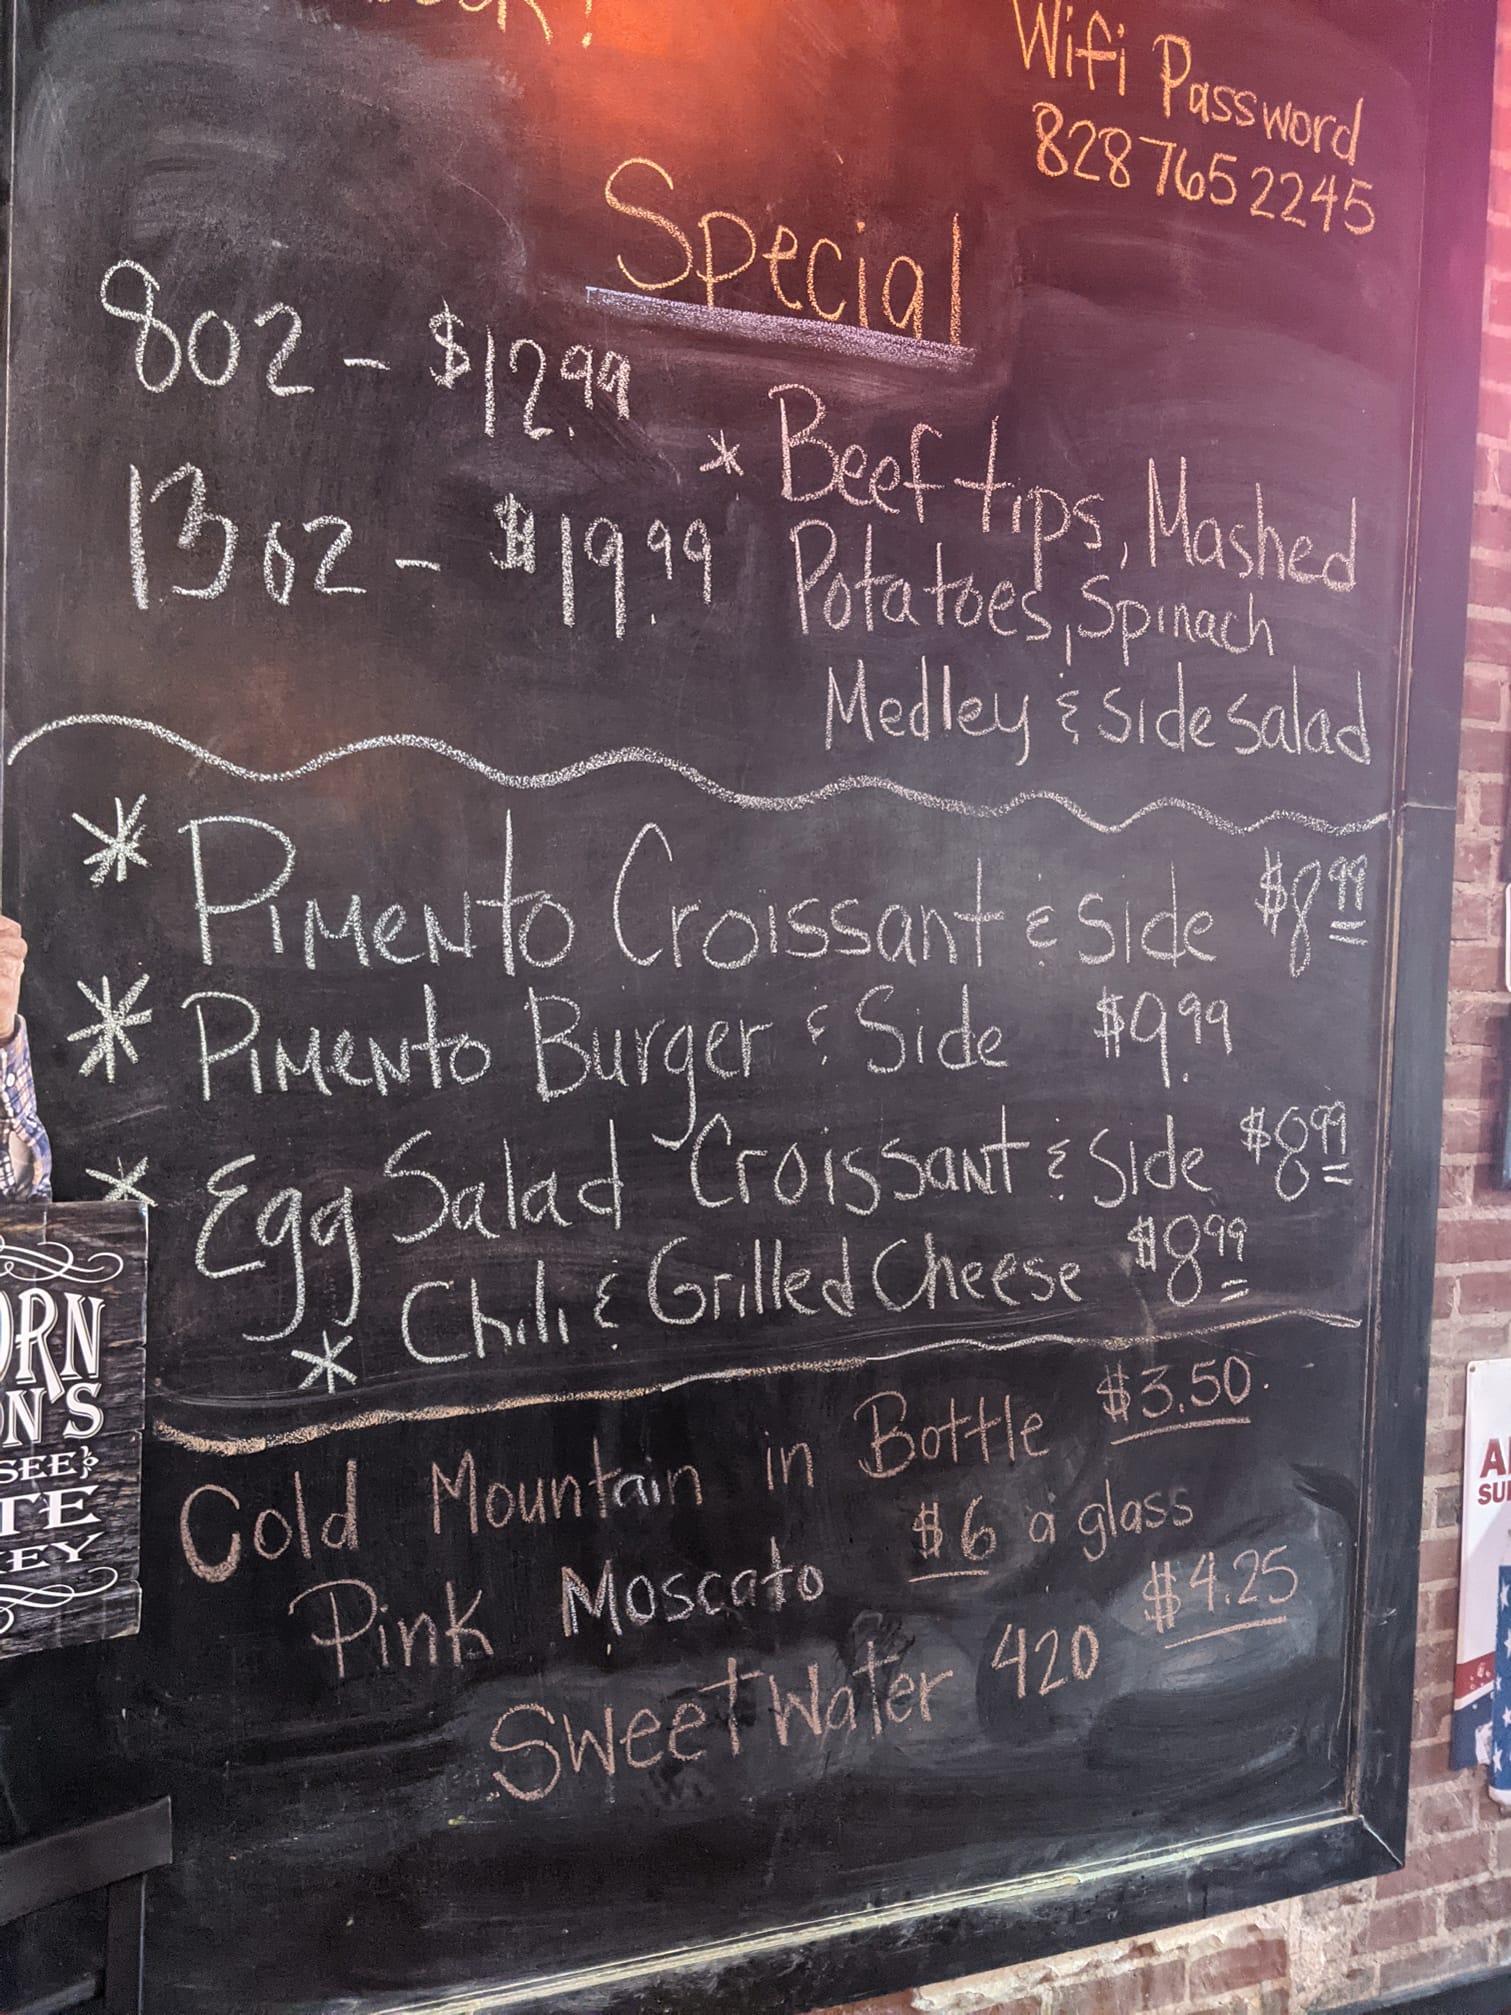 Wifi Password
828 765 2245
Special
8oz - $12.99
13oz - $19.99
* Beef tips, Mashed
Potatoes, Spinach
Medley & side salad
* Pimento Croissant & Side $8.99
* Pimento Burger & Side $9.99
* Egg Salad Croissant & Side $8.99
* Chili & Grilled Cheese $8.99
Cold Mountain in Bottle $3.50
Pink Moscato $6 a glass
SweetWater 420 $4.25
ORN
ON'S
SEE
TE
KEY